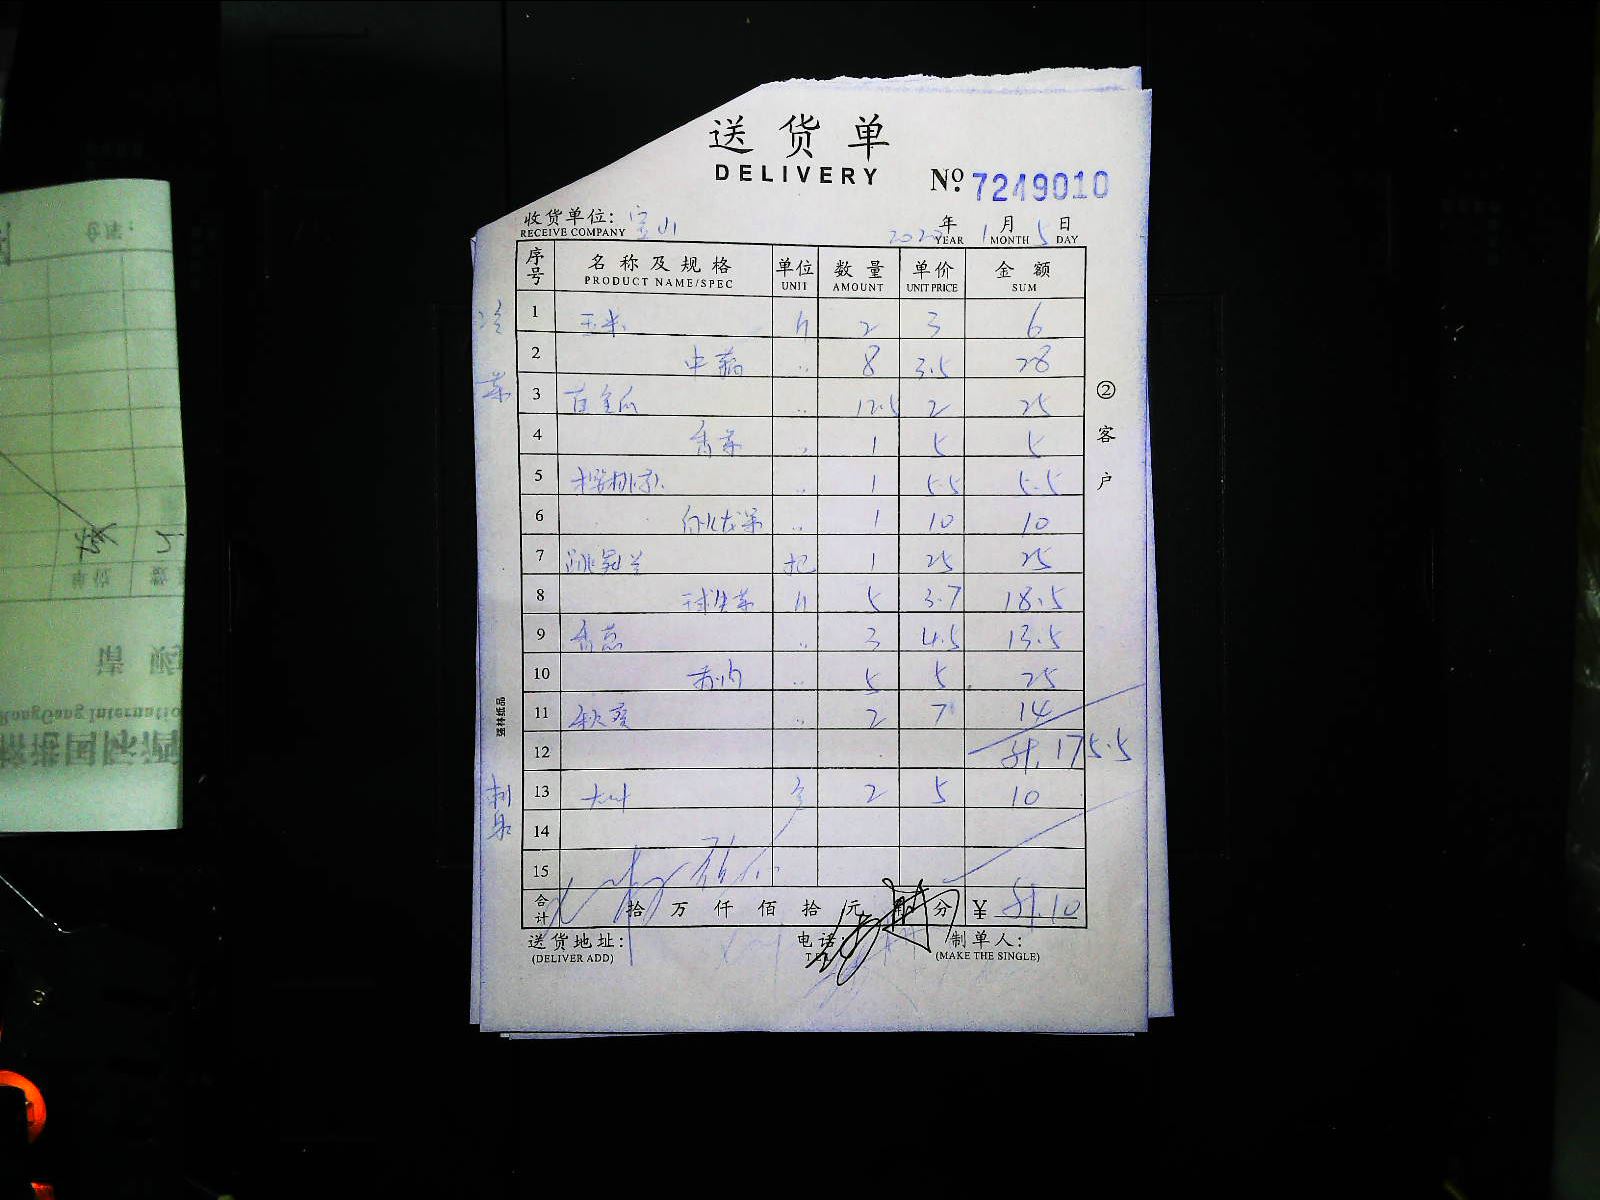 送货单
DELIVERY
No. 7249010
收货单位: 宝山
RECEIVE COMPANY
2022年 1月 5日
YEAR MONTH DAY
序号 名称及规格 单位 数量 单价 金额
PRODUCT NAME/SPEC UNIT AMOUNT UNIT PRICE SUM
冷菜
1 玉米 斤 2 3 6
2 中藕 〃 8 3.5 28
3 〃 12.5 2 25
4 香菜 〃 1 5 5
5 〃 1 5.5 5.5
6 〃 1 10 10
7 把 1 25 25
8 球生菜 斤 5 3.7 18.5
9 香葱 〃 3 4.5 13.5
10 〃 5 5 25
11 秋葵 〃 2 7 14
12 计. 175.5
刺身
13 2 5 10
14
15
合计 拾 万 仟 佰 拾 元 角 分 ¥ 计.10
送货地址: 电话: 制单人:
(DELIVER ADD) (MAKE THE SINGLE)
②客户
强林纸品